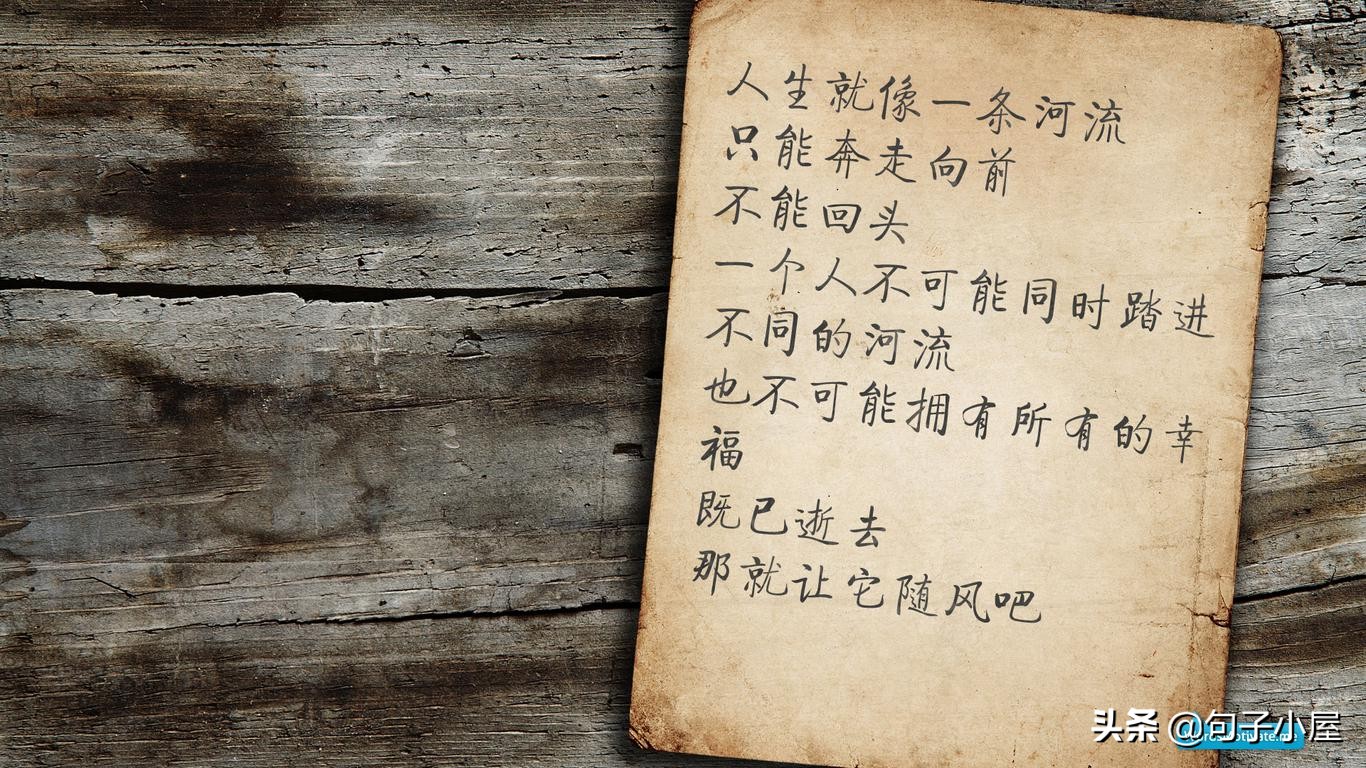 人生就像一条河流
只能奔走向前
不能回头
一个人不可能同时踏进
不同的河流
也不可能拥有所有的幸
福
既已逝去
那就让它随风吧
头条 @句子小屋